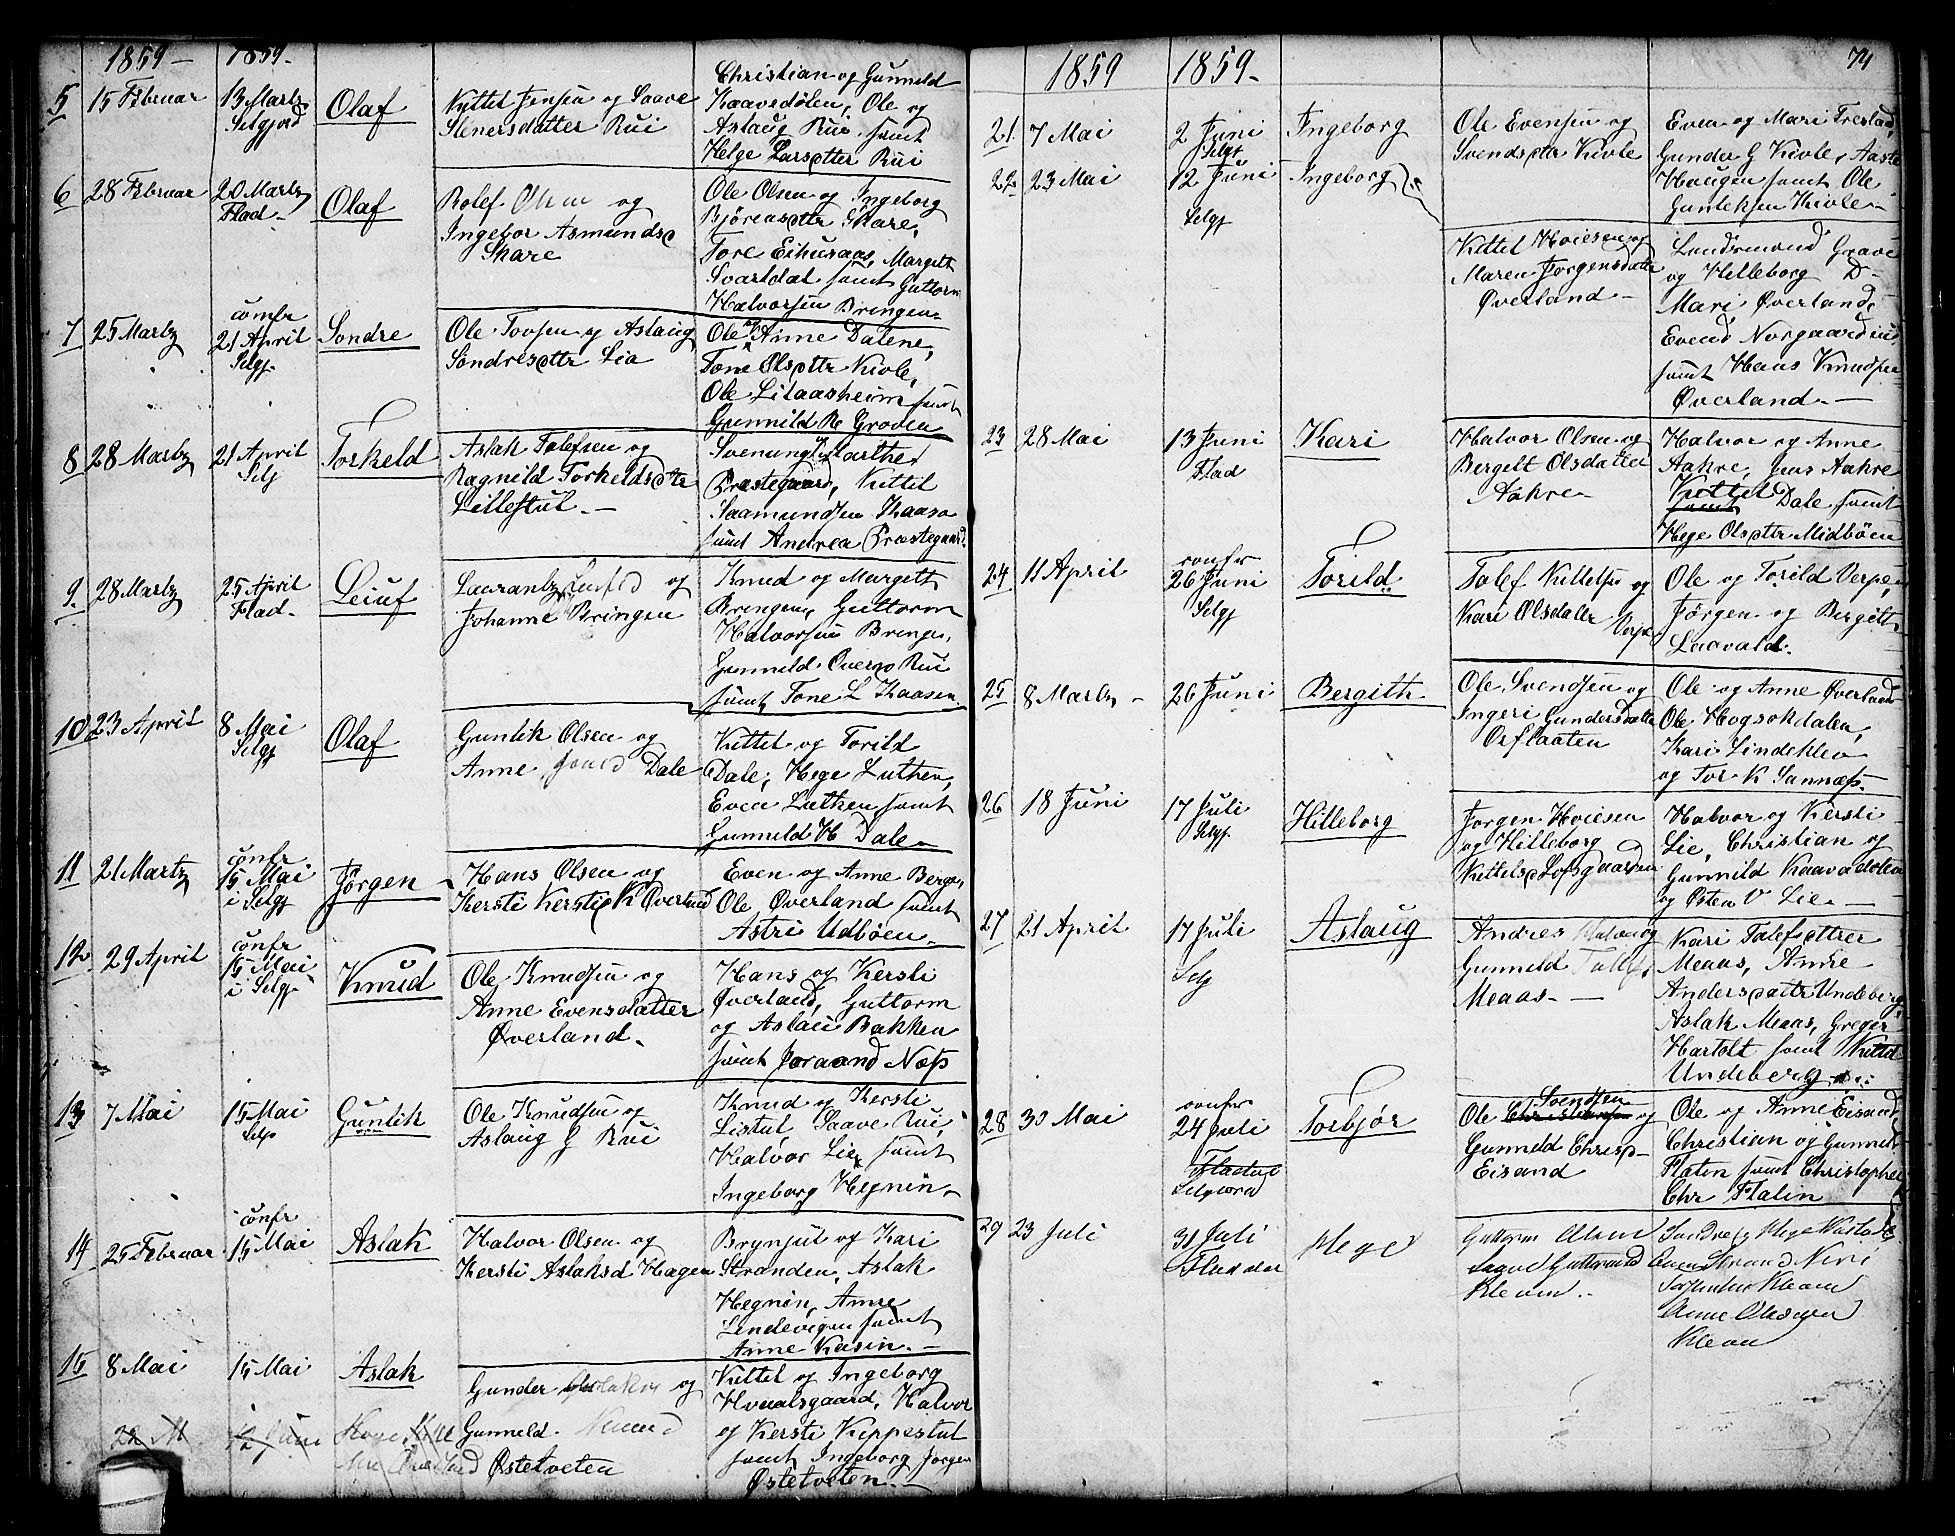 1859 — 1859 -
5 15 Februar 13 Martz Selgjord Olaf
Kittel Jensen og Saave
Stenersdatter Rui
Christian og Gunnild
Kaavedølen, Ole og
Aslaug Rui samt
Helge Larsdttr Rui
6 28 Februar 20 Martz Flad - Olaf
Rolef Olsen og
Ingebor Asmunds
Skare
Ole Olsen og Ingeborg
Bjørensdttr Skare,
Tore Eihusaas, Margett
Svartdal samt Guttorm
Halvorsen Bringen
7 25 Martz confr 21 April Selgj. Sondre
Ole Tovsen og Aslaug
Sondresdttr Lia
Ole og Anne Dalene,
Tone Olsdttr Kivle,
Ole Litaasheim samt
Gunnild R Groven
8 28 Martz 21 April Selgj Torkeld
Aslak Tolefsen og
Ragnild Torkeldsdttr
Lillestul. —
Svenung Marthe
Præstegaard, Kittel
Saamundsen Kaasa
samt Andrea Præstegaard.
9 28 Martz 25 April Flad - Leiuf
Laurantz og
Johanne Bringen
Knud og Margett
Bringen, Guttorm
Halvorsen Bringe,
Gunnild Øverbø Rui
samt Tone L Kaasen
10 23 April 8 Mai Selgj Olaf
Gunlik Olsen og
Anne Dale
Kittel og Torild
Dale, Hege Luthen,
Even Luthen samt
Gunnild H Dale -
11 21 Martz confr 15 Mai i Selgj Jørgen -
Hans Olsen og
Kersti K Øverland
Even og Anne Berge,
Ole Øverland samt
Astri Udbøen -
12 29 April confr 15 Mai i Selgj Knud
Ole Knudsen og
Anne Evensdatter
Øverland -
Hans og Kersti
Øverland, Guttorm
og Aslau Bakken
samt Joraand Næss
13 7 Mai 15 Mai Selgj Gunlik
Ole Knudsen og
Aslaug G Rui
Knud og Kersti
Listul, Saave Rui,
Halvor Lie samt
Ingeborg Hegnin -
14 25 Februar confr 15 Mai Aslak
Halvor Olsen og
Kersti Aslaksd Hagen
Brynjul og Kari
Stranden, Aslak
Hegnin, Anne
Lindevigen samt
Anne Kasin. —
15 8 Mai 15 Mai Aslak
Gunder Aslaksen og
Gunneld
Østetveten
Kittel og Ingeborg
Hvaalsgaard, Halvor
og Kersti Kippestul
samt Ingeborg Jørgen
Østetveten. —
1859 1859 - 74
21 7 Mai 2 Juni Selgj Ingeborg
Ole Evensen og
Svendsdttr Kivle
Even og Mari Treslad,
Gunder G Kivle, Aaste
Haugen samt Ole
Gunleksen Kivle -
22 23 Mai 12 Juni Selgj Ingeborg
Kittel Hoiesen og
Maren Jørgensdatter
Øverland —
Landsmand Grave
og Hilleborg D -
Mari Øverland,
Evend Norgaard
samt Hans Knudsen
Øverland. —
23 28 Mai 13 Juni Flad Kari
Halvor Olsen og
Bergett Olsdatter
Aahre -
Halvor og Anne
Aahre, Jens Aahre
Kittel
samt Dale samt
Hege Olsdttr Midbøen
24 11 April confr 26 Juni Selgj Torild
Talef Kittelss og
Kari Olsdatter Verpe
Ole og Torild Verpe,
Jørgen og Bergitt
Laavald.
25 8 Martz - 26 Juni Bergith
Ole Svendsen og
Ingeri Gundersdatter
Orslaaten
Ole og Anne Øverland
Ole Hogsokdalen,
Kari Lindeklev
og Tor K Sannæss -
26 18 Juni 17 Juli Selgj. Hilleborg
Jørgen Hoiesen
og Hilleborg
Kittelsd Lofsgaarden
Halvor og Kersti
Lie, Christian og
Gunnild Kaavadølen
og Østen V Lie —
27 21 April 17 Juli Selgj Aslaug
Andres og
Gunneld
Meaas - —
Kari Talefsdttrer
Meaas, Anne
Andersdattr Undeberg,
Aslak Meaas, Greger
Hartolt samt Kittel
Undeberg
28 30 Mai confr 24 Juli Fladal Selgjord Torbjør
Svendsen
Ole Christiansen og
Gunneld Chrisd -
Eisand
Ole og Anne Eisand,
Christian og Gunneld
Flatin samt Christopher
Chr Flatin
29 23 Juli 31 Juli Fladdal Hege
Guttorm Olsen
Guttormsd
Kleven.
Sondre og Hege
Strand
Kleven
Anne
Kleven